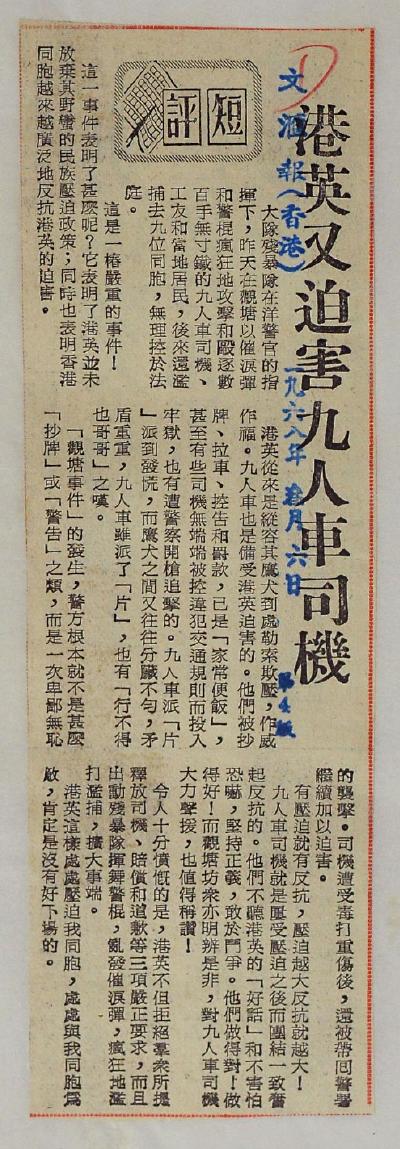 港英又迫害九人車司機
文滙報(香港)
一九六八年 叁月六日
第4版
短評
大隊殘暴隊在洋警官的指
揮下，昨天在觀塘以催淚彈
和警棍瘋狂地攻擊和毆逐數
百手無寸鐵的九人車司機、
工友和當地居民，後來還濫
捕去九位同胞，無理控於法
庭。
這是一樁嚴重的事件！
這一事件表明了甚麼呢？它表明了港英並未
放棄其野蠻的民族壓迫政策；同時也表明香港
同胞越來越廣泛地反抗港英的迫害。
港英從來是縱容其鷹犬到處勒索欺壓，作威
作福。九人車也是備受港英迫害的。他們被抄
牌、拉車、控告和罸款，已是「家常便飯」，
甚至有些司機無端端被控違犯交通規則而投入
牢獄，也有遭警察開槍追擊的。九人車派「片
」派到發慌，而鷹犬之間又往往分贓不勻，矛
盾重重，九人車雖派了「片」，也有「行不得
也哥哥」之嘆。
「觀塘事件」的發生，警方根本就不是甚麼
「抄牌」或「警告」之類，而是一次卑鄙無恥
的襲擊。司機遭受毒打重傷後，還被帶囘警署
繼續加以迫害。
有壓迫就有反抗，壓迫越大反抗就越大！
九人車司機就是屢受壓迫之後而團結一致奮
起反抗的。他們不聽港英的「好話」和不害怕
恐嚇，堅持正義，敢於鬥爭。他們做得對！做
得好！而觀塘坊衆亦明辨是非，對九人車司機
大力聲援，也值得稱讚！
令人十分憤慨的是，港英不但拒絕羣衆所提
釋放司機、賠償和道歉等三項嚴正要求，而且
出動殘暴隊揮舞警棍，亂發催淚彈，瘋狂地濫
打濫捕，擴大事端。
港英這樣處處壓迫我同胞，處處與我同胞爲
敵，肯定是沒有好下場的。